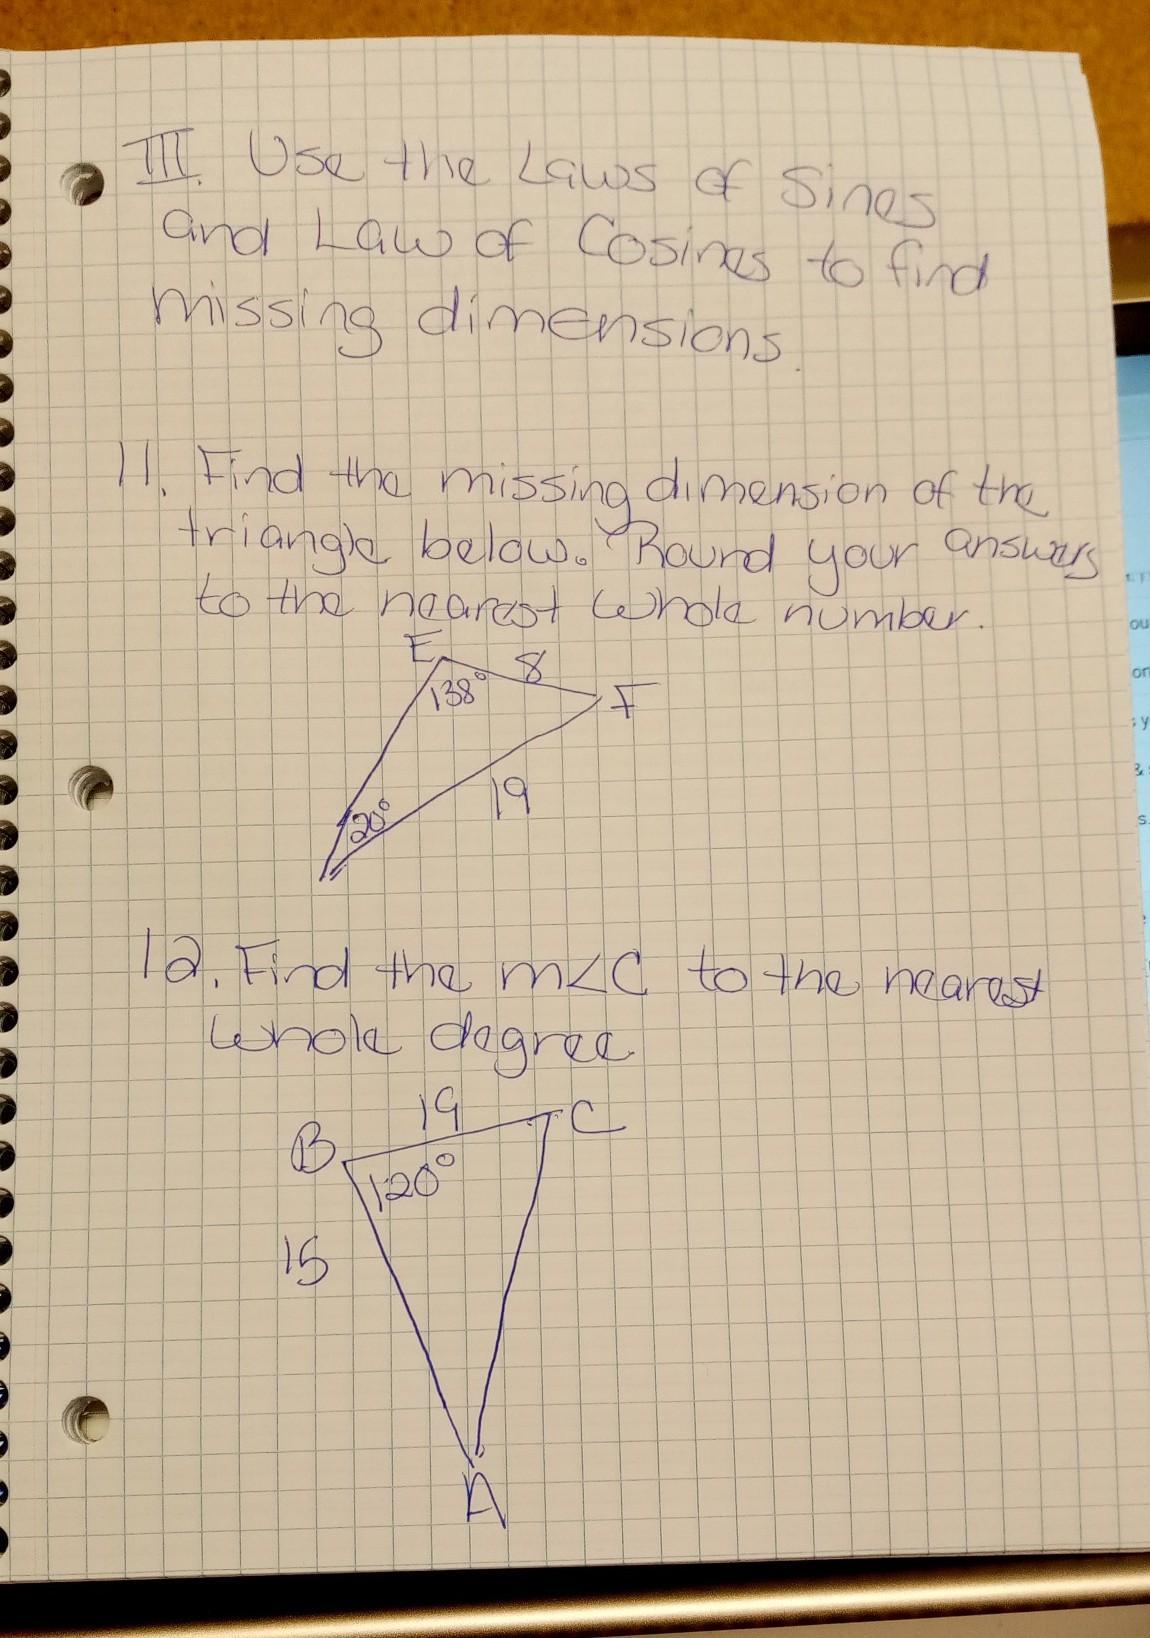 III. Use the Laws of Sines
and Law of Cosines to find
missing dimensions.
11. Find the missing dimension of the
triangle below. Round your answers
to the nearest whole number.
E 8
138° F
19
20°
12. Find the m<C to the nearest
whole degree.
19 C
B
120°
15
A